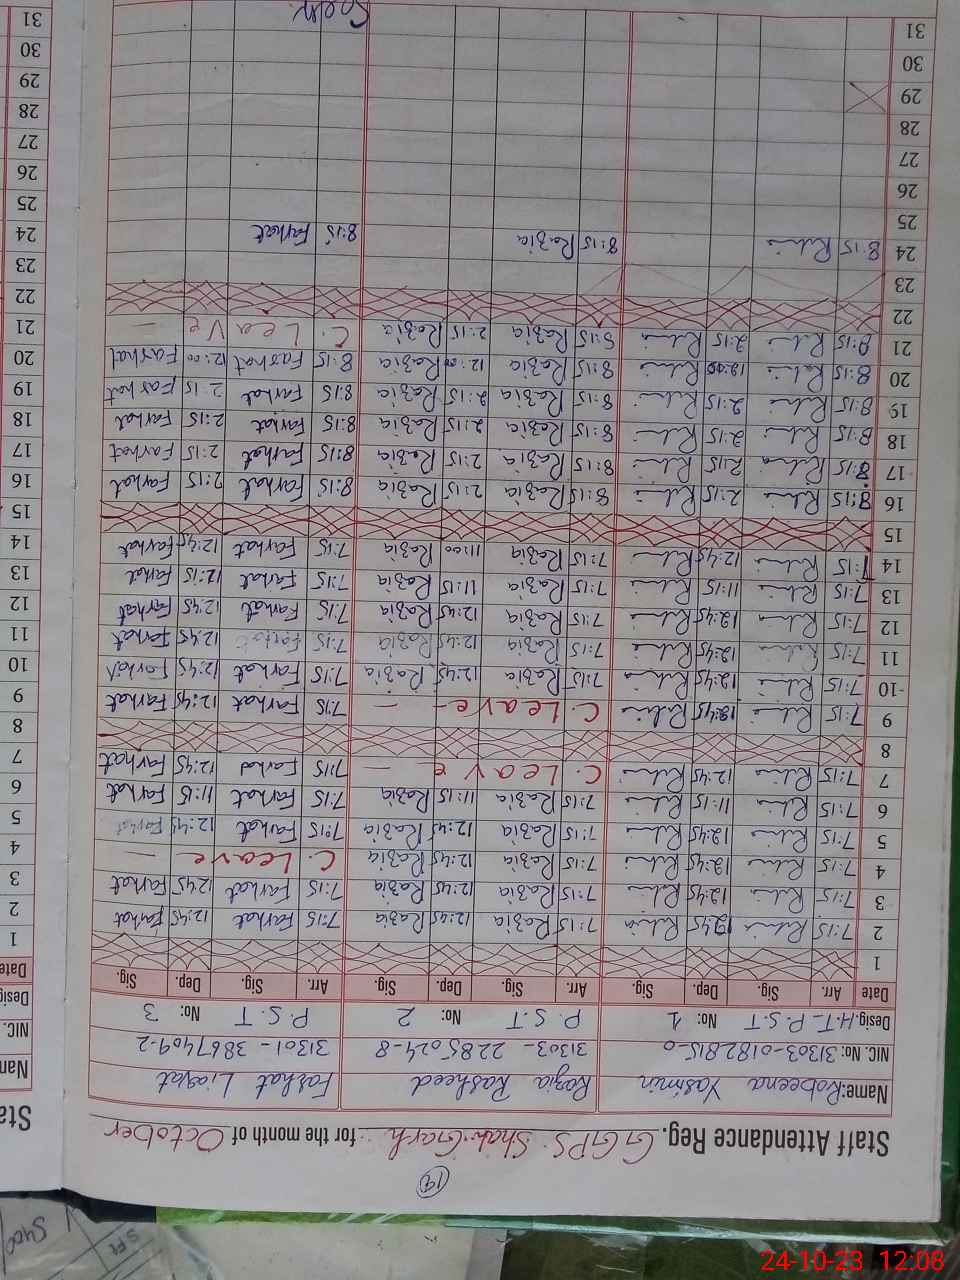 (19)
Staff Attendance Reg. GGPS Shah Garh for the month of October
Name: Robeena Yasimin Razia Rasheed Farhat Liaqat
NIC. No: 31303-0182815-0 31303-2285024-8 31301-3867409-2
Desig. H.T-P.S.T No: 1 P.S.T No: 2 P.S.T No: 3
Date Arr. Sig. Dep. Sig. Arr. Sig. Dep. Sig. Arr. Sig. Dep. Sig.
1
2 7:15 12:45 7:15 Razia 12:45 Razia 7:15 Farhat 12:45 Farhat
3 7:15 12:45 7:15 Razia 12:45 Razia 7:15 Farhat 12:45 Farhat
4 7:15 12:45 7:15 Razia 12:45 Razia C. Leave —
5 7:15 12:45 7:15 Razia 12:45 Razia 7:15 Farhat 12:45 Farhat
6 7:15 11:15 7:15 Razia 11:15 Razia 7:15 Farhat 11:15 Farhat
7 7:15 12:45 C. Leave — 7:15 Farhat 12:45 Farhat
8
9 7:15 12:45 C. Leave — 7:15 Farhat 12:45 Farhat
10 7:15 12:45 7:15 Razia 12:45 Razia 7:15 Farhat 12:45 Farhat
11 7:15 12:45 7:15 Razia 12:45 Razia 7:15 Farhat 12:45 Farhat
12 7:15 12:45 7:15 Razia 12:45 Razia 7:15 Farhat 12:45 Farhat
13 7:15 11:15 7:15 Razia 11:15 Razia 7:15 Farhat 12:15 Farhat
14 7:15 12:45 7:15 Razia 11:00 Razia 7:15 Farhat 12:45 Farhat
15
16 8:15 2:15 8:15 Razia 2:15 Razia 8:15 Farhat 2:15 Farhat
17 8:15 2:15 8:15 Razia 2:15 Razia 8:15 Farhat 2:15 Farhat
18 8:15 2:15 8:15 Razia 2:15 Razia 8:15 Farhat 2:15 Farhat
19 8:15 2:15 8:15 Razia 2:15 Razia 8:15 Farhat 2:15 Farhat
20 8:15 12:00 8:15 Razia 12:00 Razia 8:15 Farhat 12:00 Farhat
21 8:15 2:15 8:15 Razia 2:15 Razia C. Leave —
22
23
24 8:15 8:15 Razia 8:15 Farhat
25
26
27
28
29
30
31
Sta
Nam
NIC.
Desig
Date
1
2
3
4
5
6
7
8
9
10
11
12
13
14
15
16
17
18
19
20
21
22
23
24
25
26
27
28
29
30
31
24-10-23 12:08